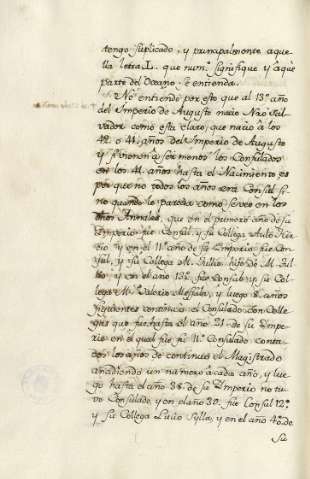 tengo suplicado, y principalmente aque
lla letra L. que num.º signifique y a que
parte del Oceano se entienda.
No entiendo por esto que al 13.º año
del Imperio de Augusto nacio Nro Sal-
vador como esta claro, que nacio a los
42 o 41 años del Imperio de Augusto
y vinieron a ser menos los Consulados
en los 41 años hasta el Nacimiento
por que no todos los años era Consul si
no quando le parecia como se vee en los
Annales, que en el primero año de su
Imperio fue Consul y su Collega Aulo
y en el 11.º año de su Imperio fue Con
sul, y su Collega M. Tullio hijo de M. Tu
llio, y en el año 13.º fue Consul y su Co
llega M. Valerio Messala, y luego 8 años
siguientes continuo el Consulado con Colle
gas que fue hasta el año 21 de su Impe
rio en el qual fue su 11.º Consulado conta
dos los años de continuo el Magistrado
añadiendo un numero a cada año, y lue
go hasta el año 38 de su Imperio no tu
vo Consulado, y en el año 39 fue Consul 12.º
y su Collega Lucio Sylla, y en el año 42 de
Su